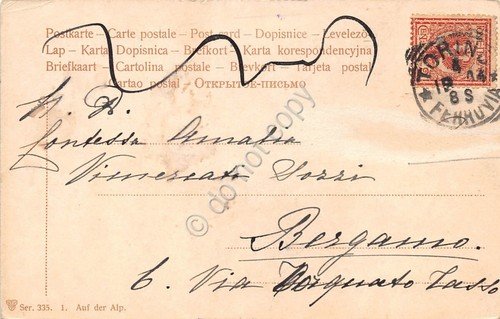 Postkarte – Carte postale – Post card – Dopisnice – Levelező
Lap – Karta Dopisnica – Brefkort – Karta korespondencyjna
Briefkaart – Cartolina postale – Brevkort – Tarjeta postal
Cartao postal – Открытое-письмо
TORINO
FERROVIA
8 S
N. D.
Contessa Amalia
Vimercato Sozzi
Bergamo.
6. Via Torquato Tasso
Ser. 335. 1. Auf der Alp.
© do not copy